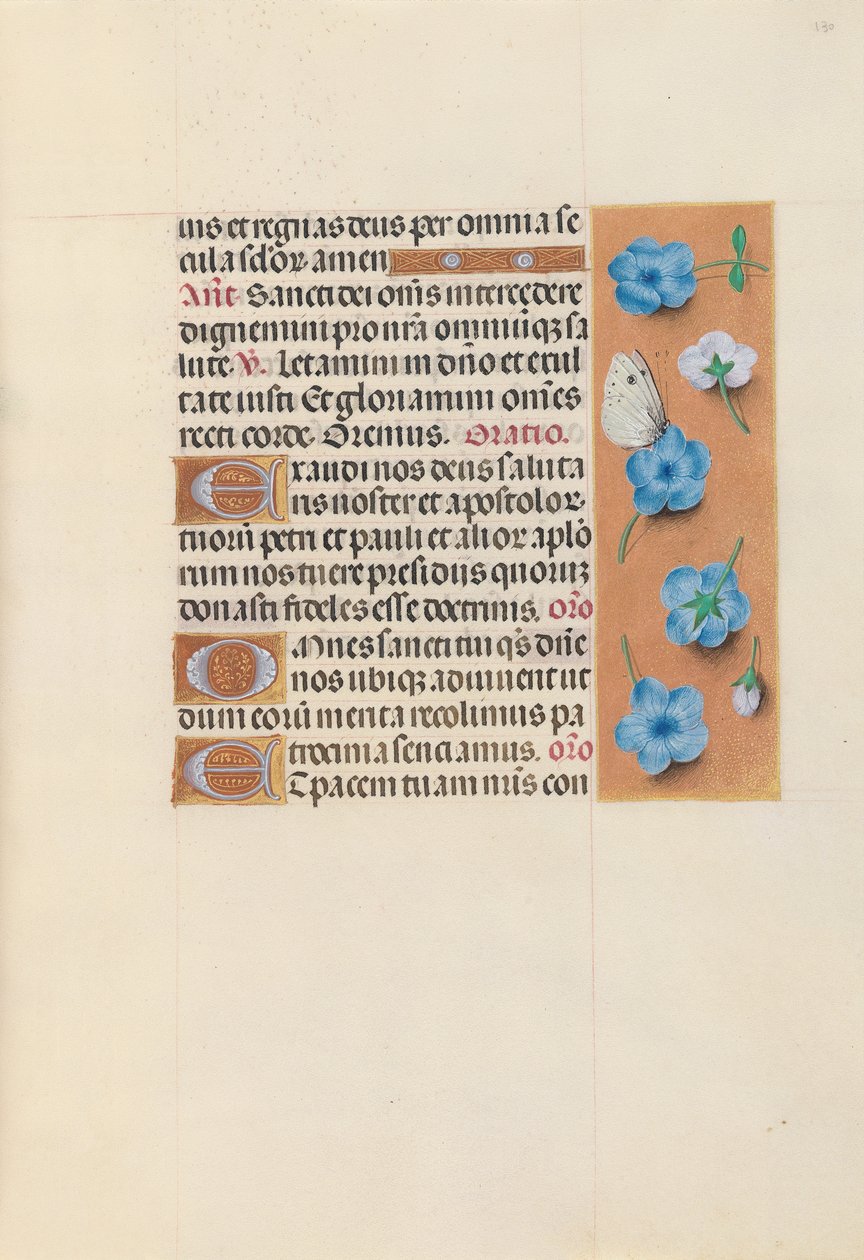 130
uis et regnas deus per omnia se
cula sclor amen
Ant̄ Sancti dei om̄s intercedere
dignemini pro nr̄a omniūqz sa
lute. V. Letamini in dn̄o et exul
tate iusti Et gloriamini om̄es
recti corde. Oremus. Oratio.
Exaudi nos deus saluta
ris noster et apostolor
tuorū petri et pauli et alior aplo
rum nos tuere presidiis quoruz
donasti fideles esse doctrinis. or̄o
Omnes sancti tui qs̄ dn̄e
nos ubiqz adiuuent ut
dum eorū merita recolimus pa
trocinia senciamus. or̄o
Et pacem tuam nr̄is con